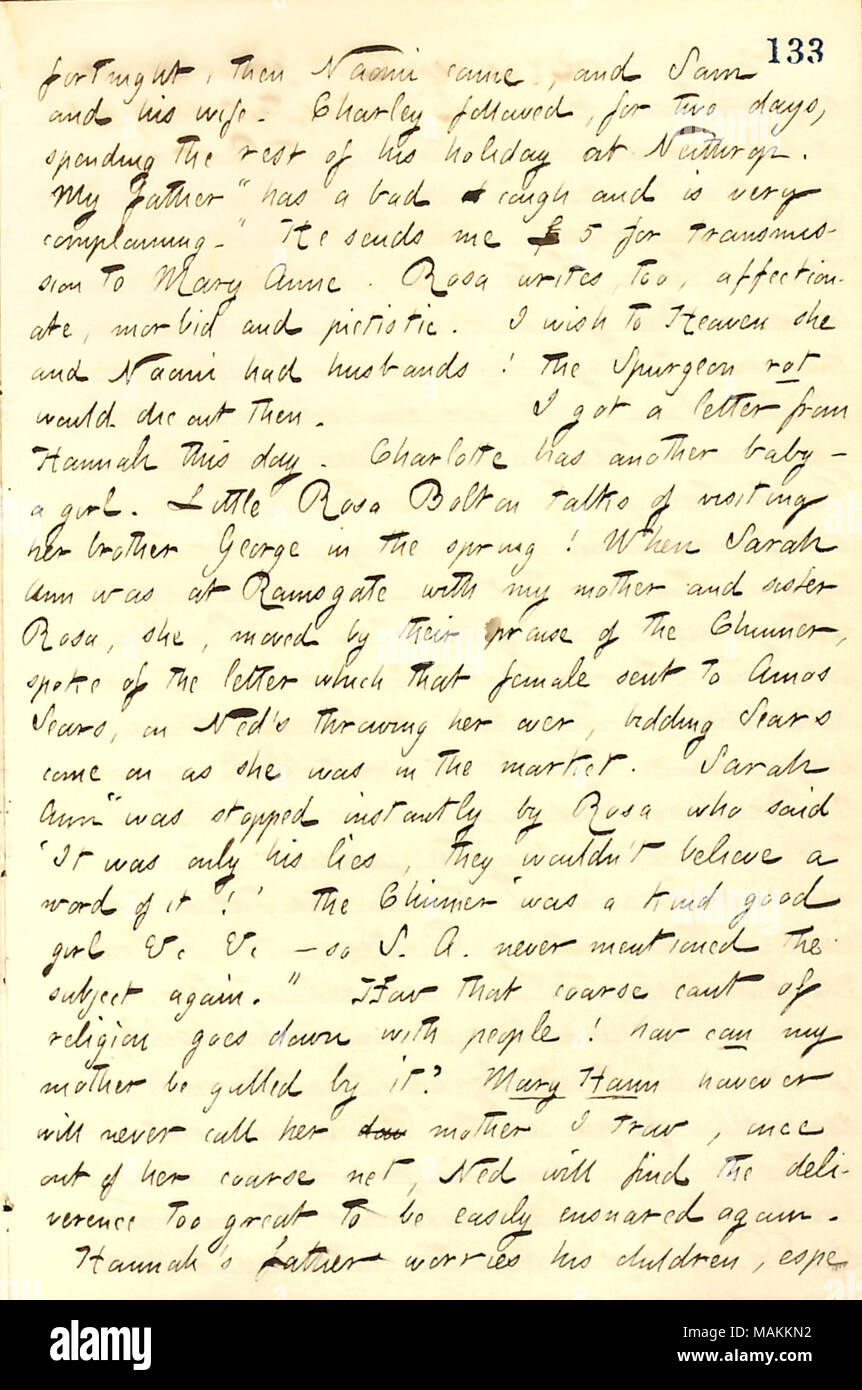 133
fortnight, then Naomi came, and Sam
and his wife. Charley followed, for two days,
spending the rest of his holiday at Neithrop.
My father "has a bad cough and is very
complaining." He sends me £5 for transmis-
sion to Mary Anne. Rosa writes, too, affection-
ate, morbid and pietistic. I wish to Heaven she
and Naomi had husbands! the Spurgeon rot
would die out then. I got a letter from
Hannah this day. Charlotte has another baby —
a girl. Little Rosa Bolton talks of visiting
her brother George in the spring! When Sarah
Ann was at Ramsgate with my mother and sister
Rosa, she, moved by their praise of the Chinner,
spoke of the letter which that female sent to Amos
Sears, on Ned's throwing her over, bidding Sears
come on as she was in the market. Sarah
Ann "was stopped instantly by Rosa who said
'It was only his lies, they wouldn't believe a
word of it!' the Chinner was a kind good
girl &c &c — so S. A. never mentioned the
subject again." How that coarse cant of
religion goes down with people! how can my
mother be gulled by it? Mary Hann however
will never call her mother I trow, once
out of her coarse net, Ned will find the deli-
verence too great to be easily ensnared again.
Hannah's father worries his children, espe
alamy
Image ID: MAKKN2
www.alamy.com